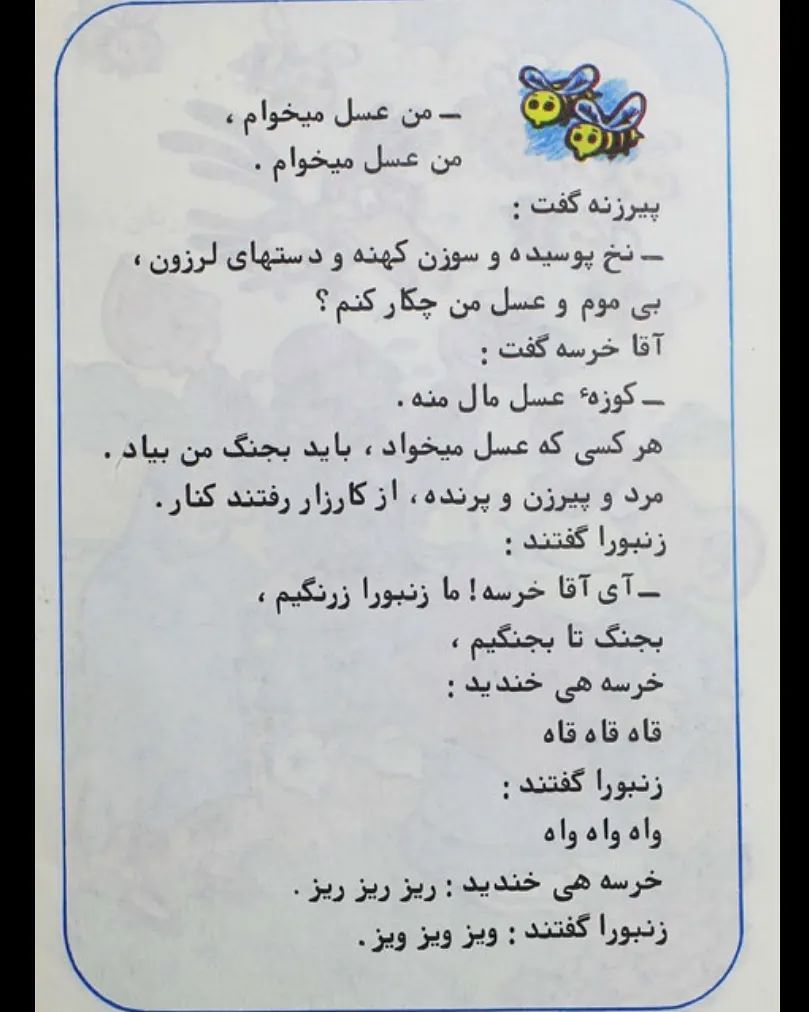 ـ من عسل میخوام ،
من عسل میخوام .
پیرزنه گفت :
ـ نخ پوسیده و سوزن کهنه و دستهای لرزون ،
بی موم و عسل من چکار کنم ؟
آقا خرسه گفت :
ـ کوزهٔ عسل مال منه .
هر کسی که عسل میخواد ، باید بجنگ من بیاد .
مرد و پیرزن و پرنده ، از کارزار رفتند کنار .
زنبورا گفتند :
ـ آی آقا خرسه ! ما زنبورا زرنگیم ،
بجنگ تا بجنگیم ،
خرسه هی خندید :
قاه قاه قاه
زنبورا گفتند :
واه واه واه
خرسه هی خندید : ریز ریز ریز .
زنبورا گفتند : ویز ویز ویز .